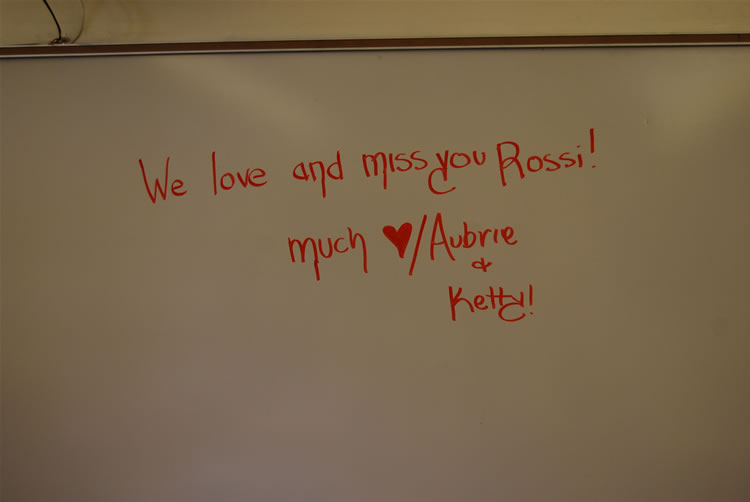 We love and miss you Rossi!
much ♥/Aubrie
&
Ketty!